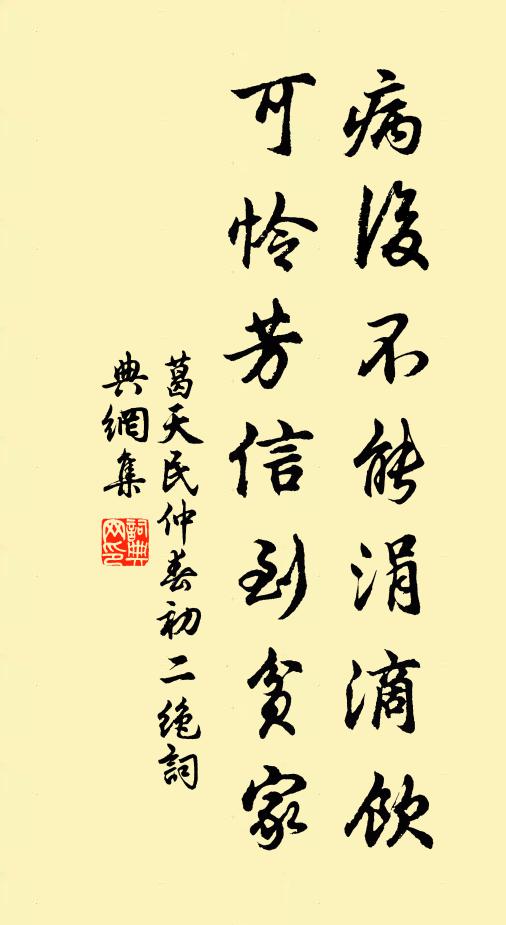 病後不能涓滴飲
可怜芳信到貧家
葛天民仲春初二絶詞
典網集
詞典网印